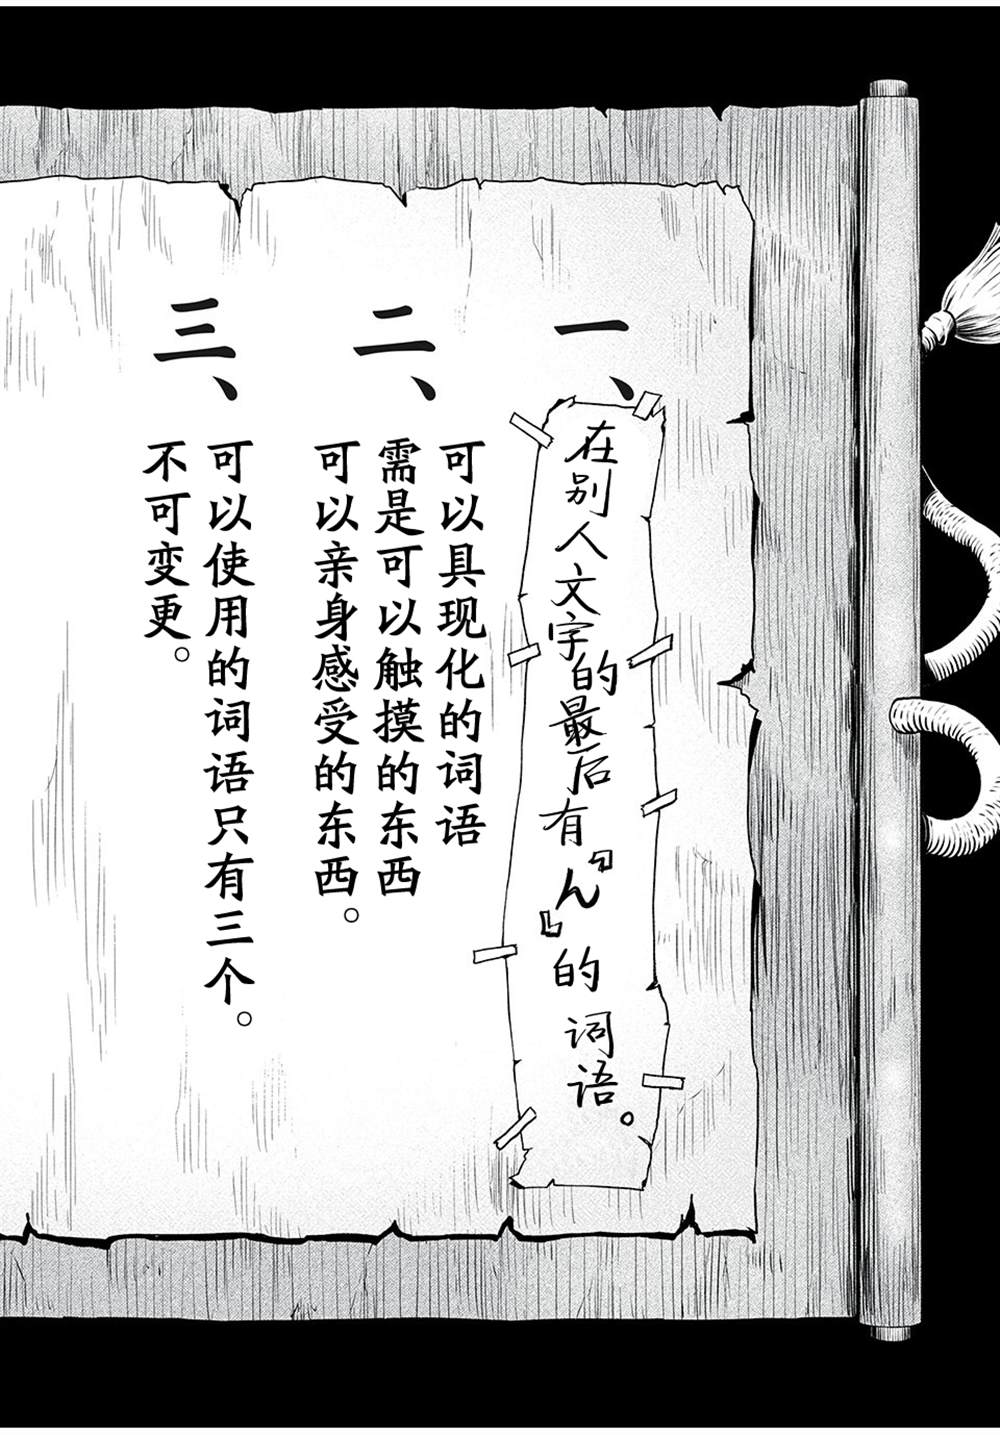 一、
在别人文字的最后有『ん』的词语。
二、
可以具现化的词语
需是可以触摸的东西
可以亲身感受的东西。
三、
可以使用的词语只有三个。
不可变更。